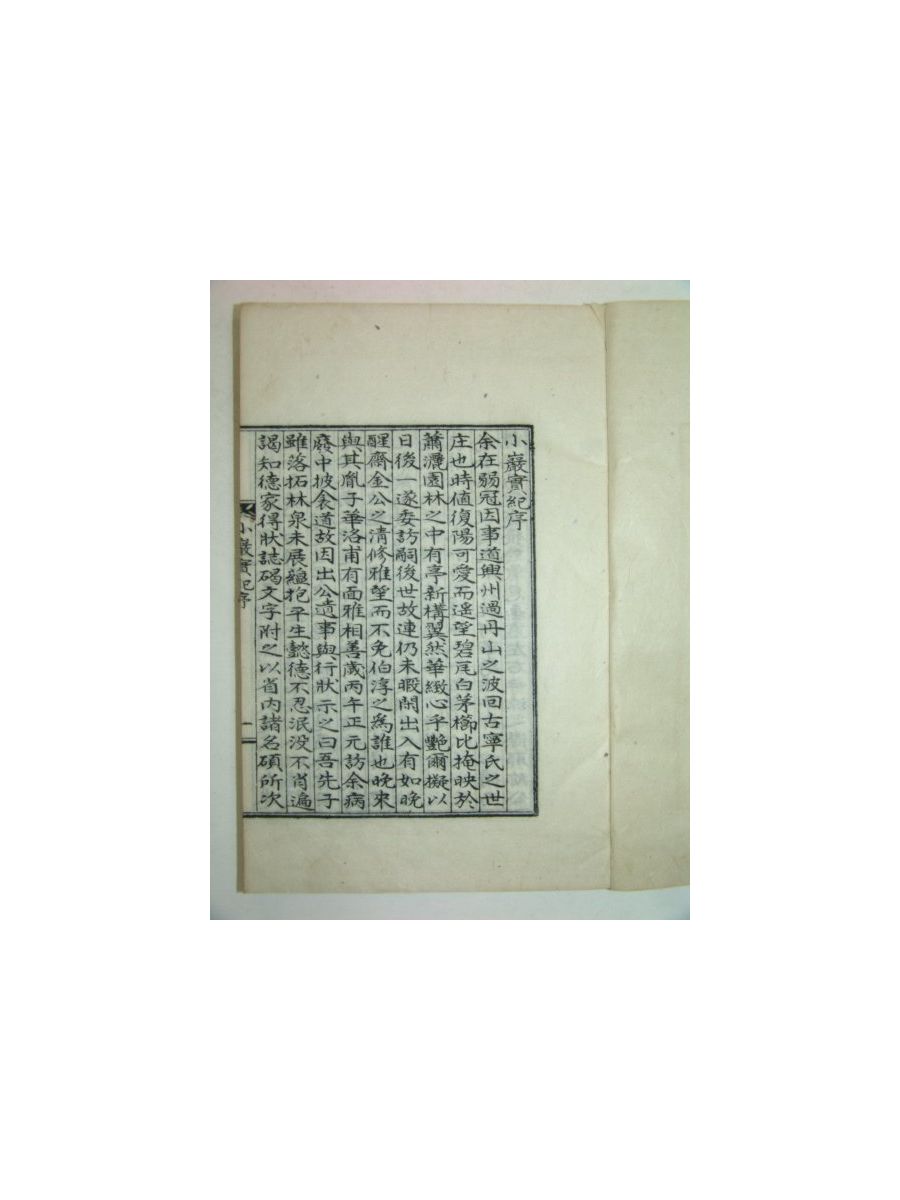 小巖實紀序
余在弱冠因事道興州過丹山之波回古寧氏之世
庄也時値復陽可愛而遥望碧瓦白茅櫛比掩映於
蕭灑園林之中有亭新構翼然華緻心乎艶爾擬以
日後一遂委訪嗣後世故連仍未暇閒出入有如晩
醒齋金公之清修雅望而不免伯淳之爲誰也晩來
與其胤子華洛甫有面雅相善歳丙午正元訪余病
廢中披衾道故因出公遺事與行狀示之曰吾先子
雖落拓林泉未展蘊抱平生懿德不忍泯没不肖遍
謁知德家得狀誌碣文字附之以省内諸名碩所次
小巖實紀序
一